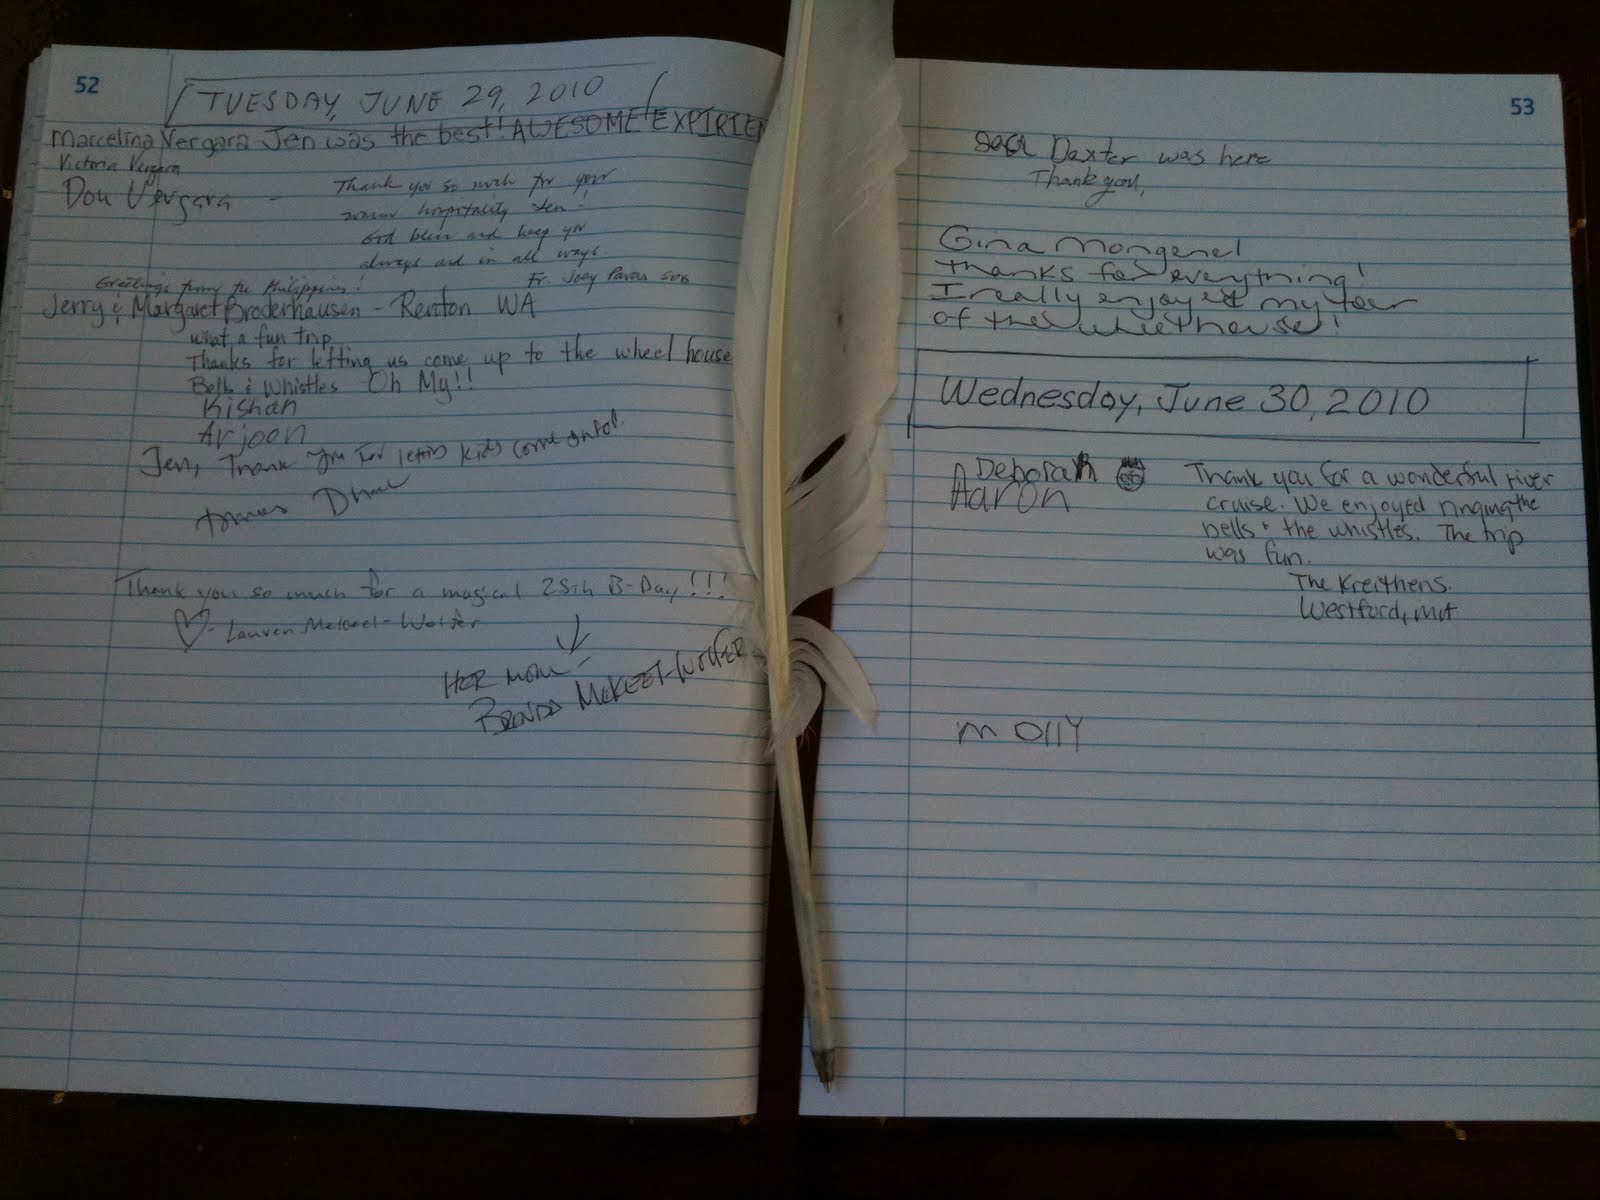 52
TUESDAY, JUNE 29, 2010
Marcelina Vergara Jen was the best! AWESOME EXPIRIEN
Victoria Vergara
Don Vergara - Thank you so much for your
warm hospitality Jen!
God bless and keep you
always and in all ways.
Fr. Joey
Greetings from the Philippines!
Jerry & Margaret Broderhausen - Renton WA
what a fun trip
Thanks for letting us come up to the wheel house
Bells & Whistles Oh My!!
Kishan
Arjoon
Jen, Thank you for letting kids come
Thank you so much for a magical 25th B-Day!!!
Lauren
HER MOM -
BRENDA MCKEET-WOLFER
53
Dexter was here
Thank you,
Gina Mongenel
thanks for everything!
I really enjoyed my toar
of the wheelhouse!
Wednesday, June 30, 2010
Deborah
Aaron
Thank you for a wonderful river
cruise. We enjoyed ringing the
bells + the whistles. The trip
was fun.
The Kreithens.
Westford, MA
MOllY